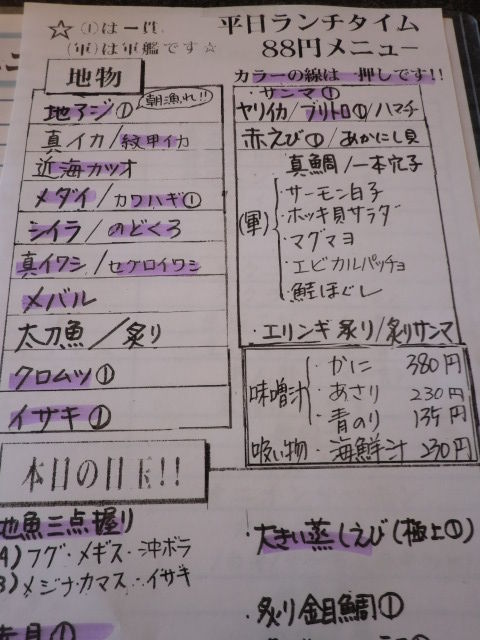 ☆ ①は一貫、
(軍)は軍艦です☆
平日ランチタイム
88円メニュー
カラーの線は一押しです!!
地物
地アジ① 朝漁れ!!
真イカ/紋甲イカ
近海カツオ
メダイ/カワハギ①
シイラ/のどくろ
真イワシ/セグロイワシ
メバル
太刀魚/炙り
クロムツ①
イサキ①
・サンマ①
ヤリイカ/ブリトロ①/ハマチ
赤えび①/あかにし貝
真鯛/一本穴子
(軍)
・サーモン白子
・ホッキ貝サラダ
・マグマヨ
・エビカルパッチョ
・鮭ほぐし
・エリンギ炙り/炙りサンマ
味噌汁
・かに 380円
・あさり 230円
・青のり 135円
吸い物・海鮮汁 230円
本日の目玉!!
地魚三点握り
A)フグ・メギス・沖ボラ
B)メジナ・カマス・イサキ
・大きい蒸しえび(極上①)
・炙り金目鯛①